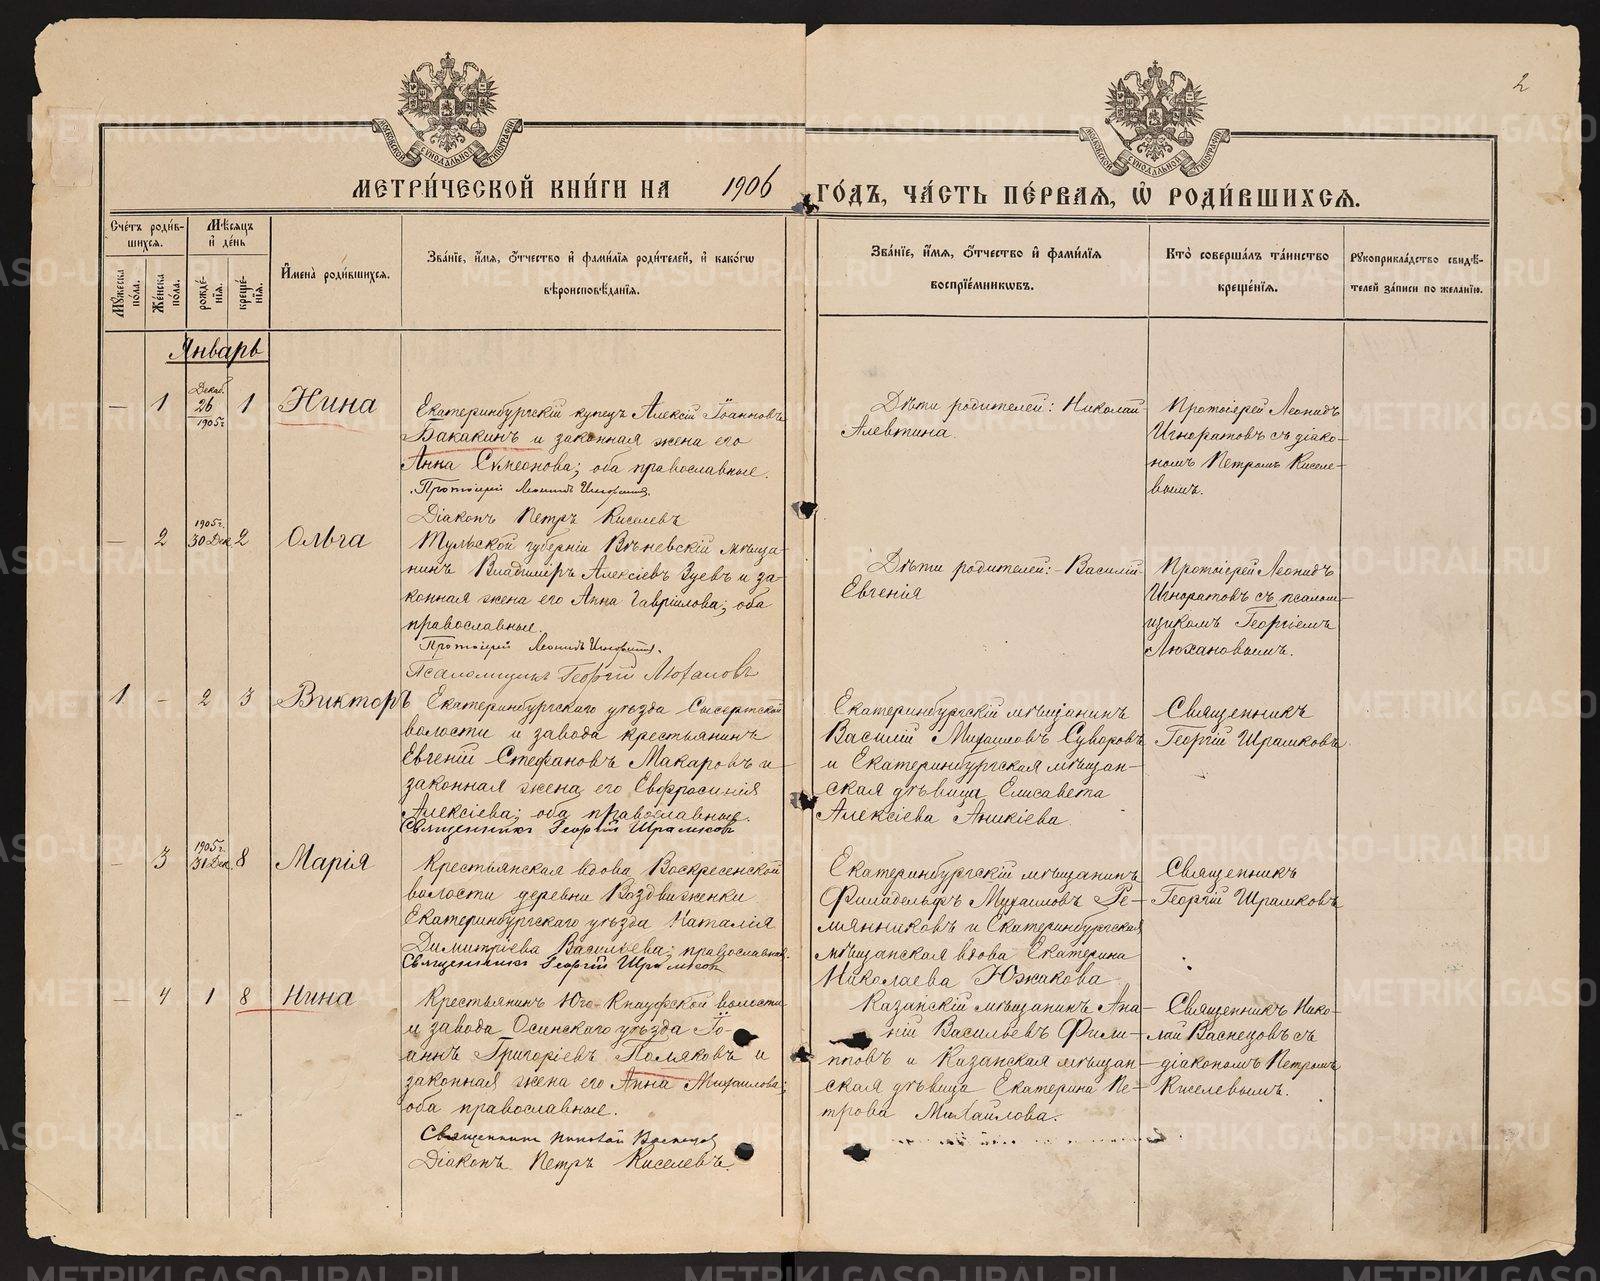 2
МОСКОВСКОЙ СѴНОДАЛЬНОЙ ТИПОГРАФІИ
МОСКОВСКОЙ СѴНОДАЛЬНОЙ ТИПОГРАФІИ
МЕТРИ́ЧЕСКОЙ КНИ́ГИ НА 1906 ГО́ДЪ, ЧА́СТЬ ПЕ́РВАѦ, Ѽ РОДИ́ВШИХСѦ.
Сче́тъ роди́в-
шихсѧ.
Мѣ́сѧцъ
и҆ де́нь
Мꙋ́жеска по́ла.
Же́нска по́ла.
рожде́-
нїѧ.
креще́-
нїѧ.
И҆мена̀ роди́вшихсѧ.
Зва́нїе, и҆́мѧ, ѻ҆́тчество и҆ фами́лїѧ роди́телей, и҆ како́гѡ
вѣроисповѣ́данїѧ.
Зва́нїе, и҆́мѧ, ѻ҆́тчество и҆ фами́лїѧ
воспрїе́мникѡвъ.
Кто̀ соверша́лъ та́инство
креще́нїѧ.
Рꙋкоприкла́дство свидѣ́-
телей за́писи по жела́нїю.
Январь
— 1 Декаб. 26 1905 г. 1 Нина
Екатеринбургскій купецъ Алексій Іоанновъ
Бакакинъ и законная жена его
Анна Симеонова; оба православные.
Протоіерей Леонидъ Игноратовъ.
Діаконъ Петръ Киселевъ
Дѣти родителей: Николай
Алевтина.
Протоіерей Леонидъ
Игноратовъ съ діако-
номъ Петромъ Киселе-
вымъ.
— 2 1905 г. 30 Дек. 2 Ольга
Тульской губерніи Вѣневскій мѣща-
нинъ Владиміръ Алексіевъ Зуевъ и за-
конная жена его Анна Гавріилова; оба
православные.
Протоіерей Леонидъ Игноратовъ.
Псаломщикъ Георгій Люхановъ
Дѣти родителей: - Василій
Евгенія
Протоіерей Леонидъ
Игноратовъ съ псалом-
щикомъ Георгіемъ
Люхановымъ.
1 - 2 3 Викторъ
Екатеринбургскаго уѣзда Сысертской
волости и завода крестьянинъ
Евгеній Стефановъ Макаровъ и
законная жена его Евфросинія
Алексіева; оба православные.
Священникъ Георгій Шрамковъ
Екатеринбургскій мѣщанинъ
Василій Михаиловъ Суворовъ
и Екатеринбургская мѣщан-
ская дѣвица Елисавета
Алексіева Аникіева.
Священникъ
Георгій Шрамковъ.
- 3 1905 г. 31 Дек. 8 Марія
Крестьянская вдова Воскресенской
волости деревни Воздвиженки
Екатеринбургскаго уѣзда Наталія
Димитріева Васильева; православная.
Священникъ Георгій Шрамковъ
Екатеринбургскій мѣщанинъ
Филадельфъ Михаиловъ Ре-
мянниковъ и Екатеринбургская
мѣщанская вдова Екатерина
Николаева Южакова
Священникъ
Георгій Шрамковъ
- 4 1 8 Нина
Крестьянинъ Юго-Кнауфской волости
и завода Осинскаго уѣзда Іо-
аннъ Григоріевъ Поляковъ и
законная жена его Анна Михаилова;
оба православные.
Священникъ Николай Васнецовъ
Діаконъ Петръ Киселевъ
Казанскій мѣщанинъ Ана-
ній Васильевъ Фили-
пповъ и Казанская мѣщан-
ская дѣвица Екатерина Пе-
трова Михайлова.
Священникъ Нико-
лай Васнецовъ съ
діакономъ Петромъ
Киселевымъ.
METRIKI.GASO-URAL.RU